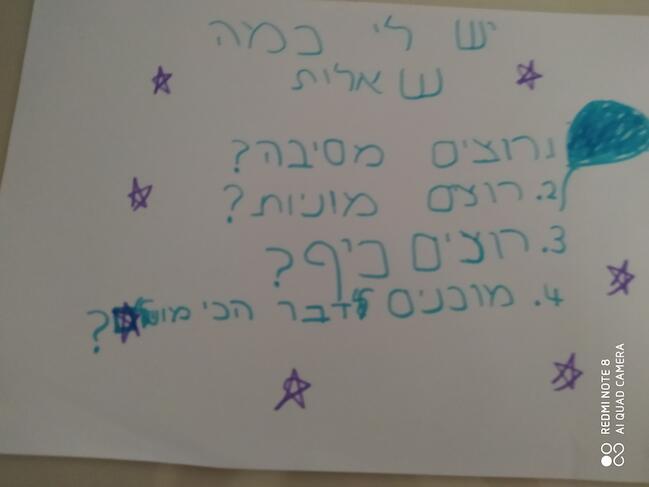 יש לי כמה
שאלית
1. רוצים מסיבה?
2. רוצים מוניות?
3. רוצים כיף?
4. מוכנים לדבר הכי ?
REDMI NOTE 8
AI QUAD CAMERA